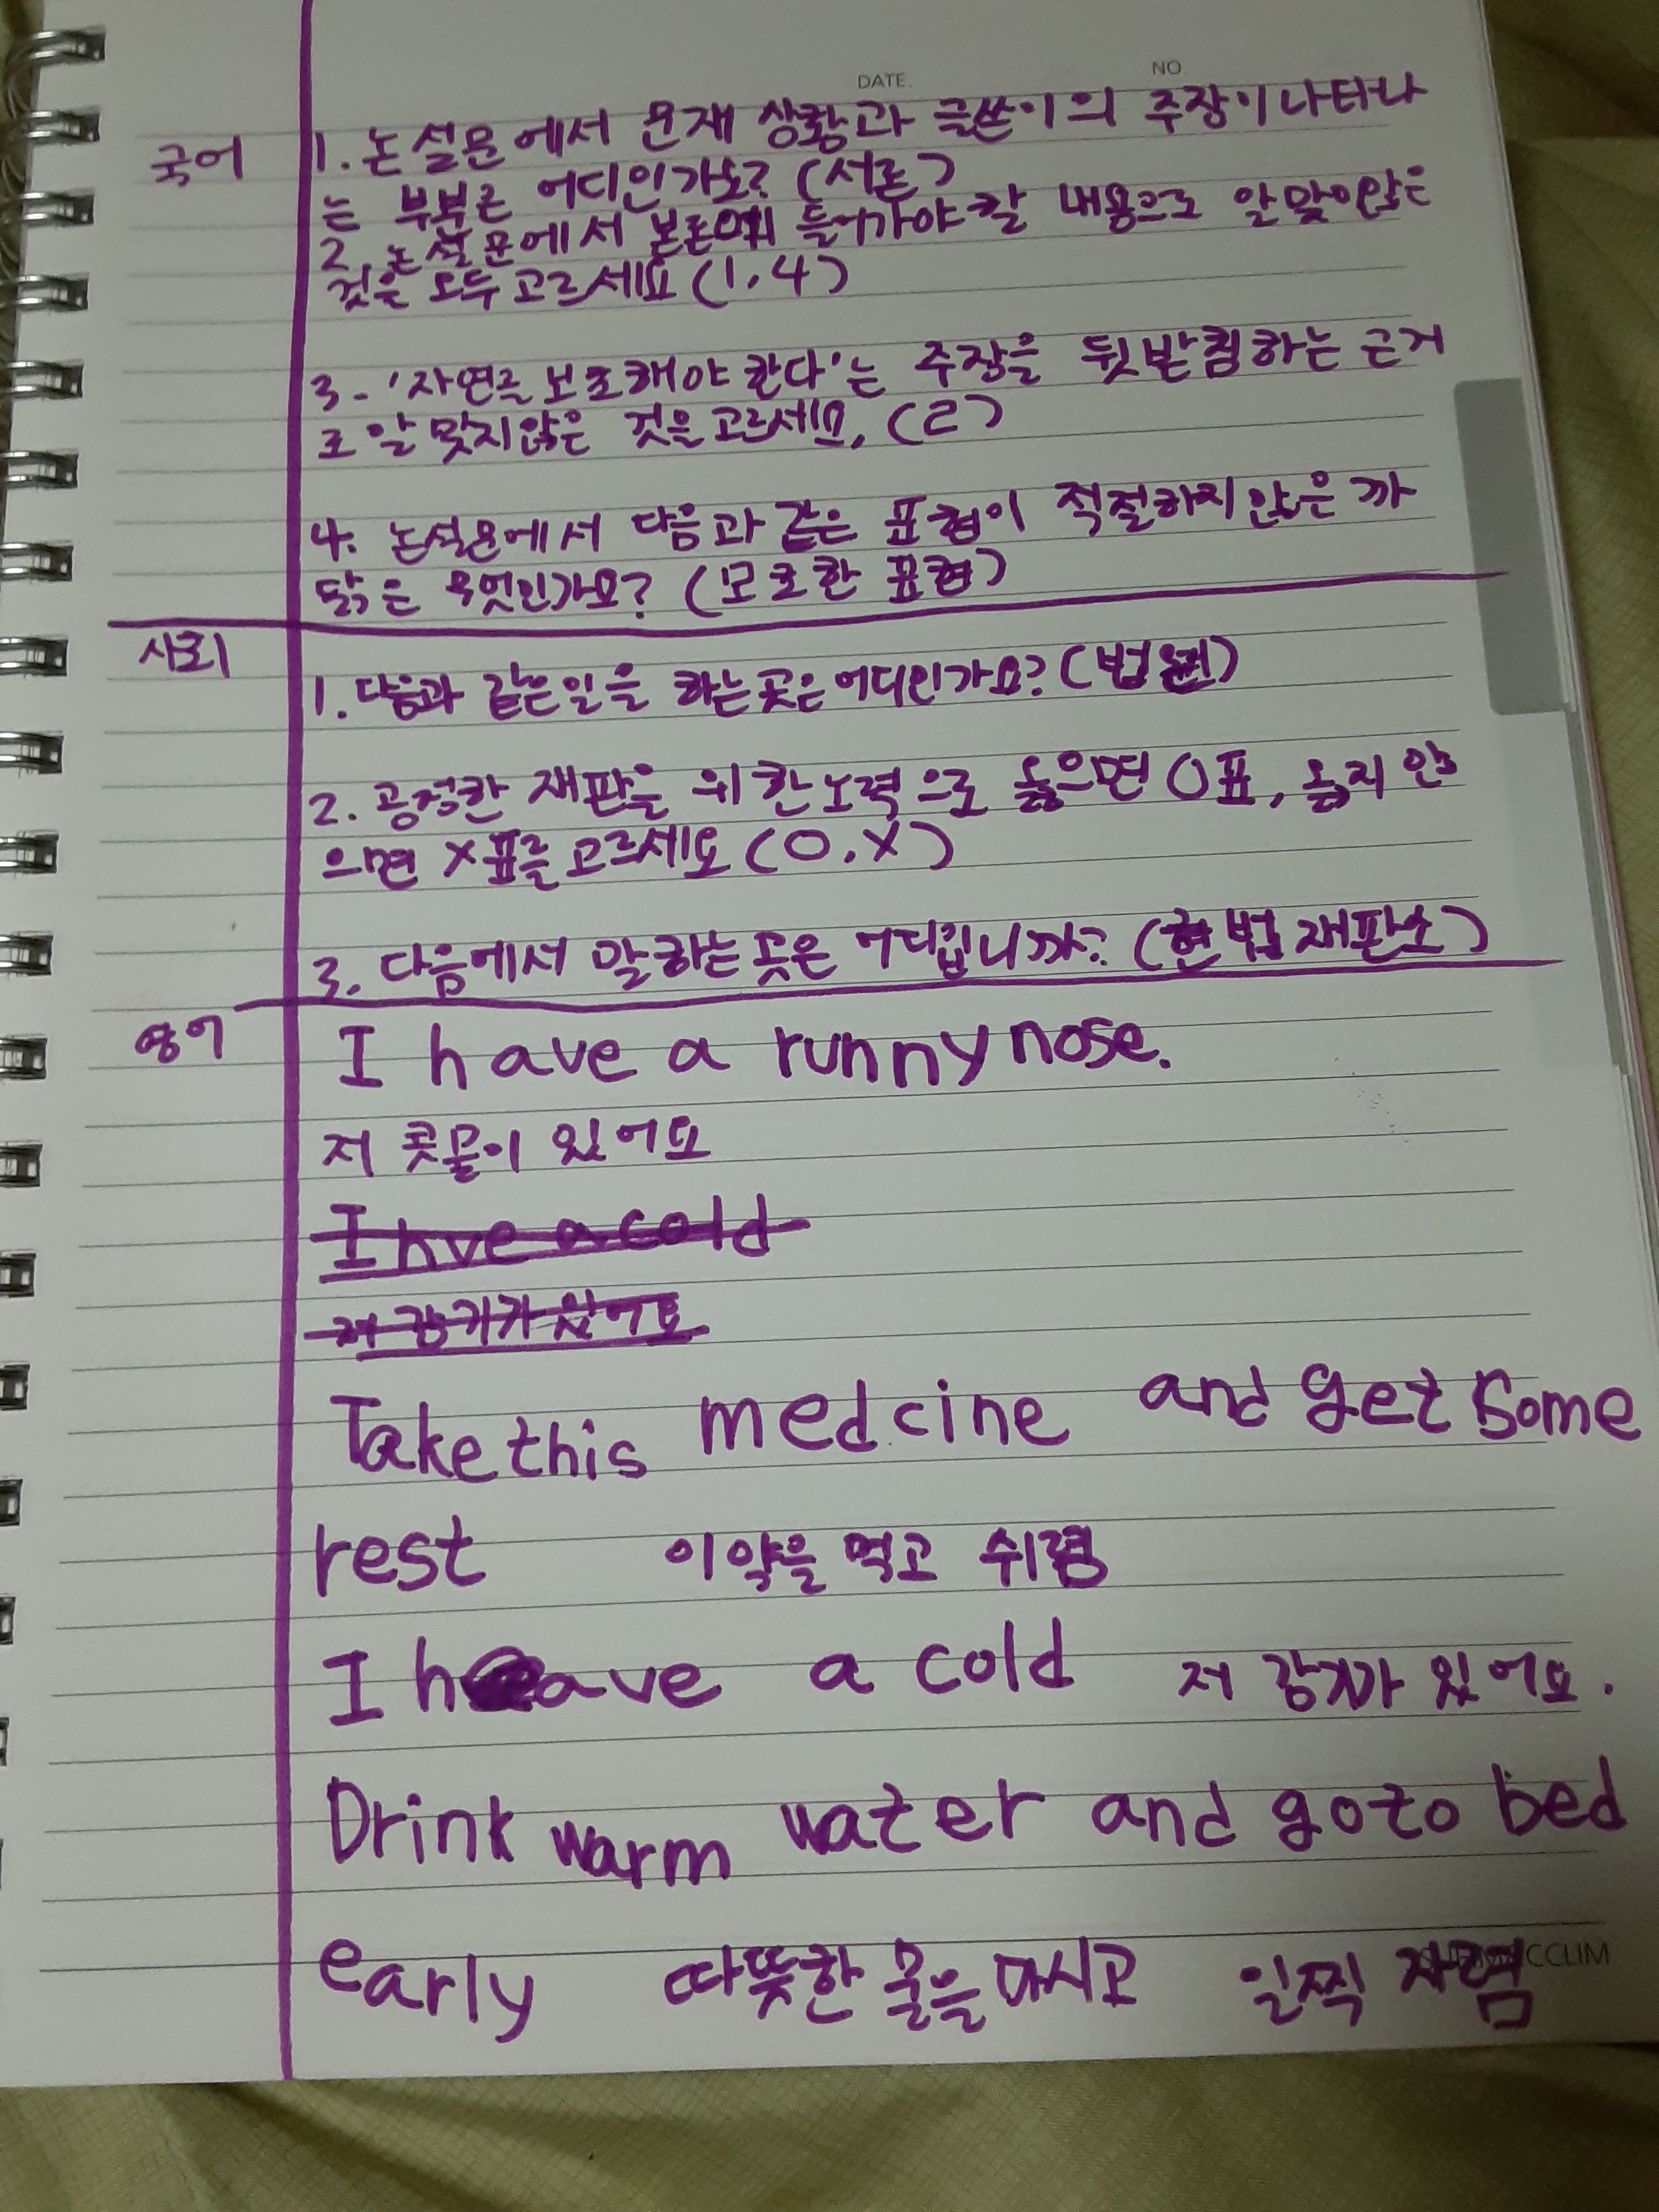 DATE. NO.
국어 1. 논설문에서 문재 상황과 글쓴이의 주장이 나타나
는 부분은 어디인가요? (서론)
2. 논설문에서 본론에 들어가야 할 내용으로 알맞이않은
것을 모두 고르세요 (1, 4)
3. '자연을 보호해야 한다'는 주장을 뒷받침하는 근거
로 알맞지않은 것을 고르세요, (2)
4. 논설문에서 다음과 같은 표현이 적절하지 않은 까
닭은 무엇인가요? (모호한 표현)
사회
1. 다음과 같은 일을 하는곳은 어디인가요? (법원)
2. 공정한 재판을 위한 노력으로 옳으면 O표, 옳지 않
으면 X표를 고르세요 (O, X)
3. 다음에서 말하는곳은 어디입니까? (헌법 재판소)
영어 I have a runny nose.
저 콧물이 있어요
I hve a cold
저 감기가 있어요
Take this medcine and get some
rest 이 약을 먹고 쉬렴
I have a cold 저 감기가 있어요.
Drink warm water and go to bed
early 따뜻한 물을 마시고 일찍 자렴